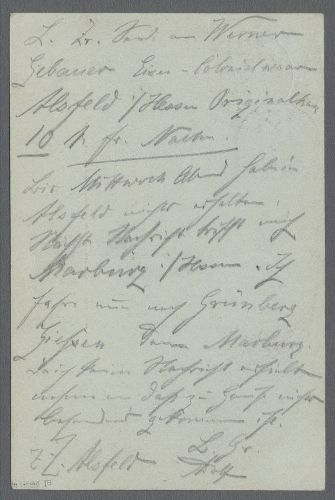 L. Fr. Send. an Werner
Gebauer Eisen- Colonialwaren
Alsfeld i/Hessen Original
10 fr. Nachn.
Bis Mittwoch Abend habe in
Alsfeld nichts erhalten.
Nächste Nachricht trifft mich
Marburg i/Hessen. Ich
fahre nun nach Grünberg
Giessen dann Marburg.
Da ich keine Nachricht erhielt
nehme an daß zu Hause nichts
besonderes gekommen ist.
z. Z. Alsfeld L. Gr.